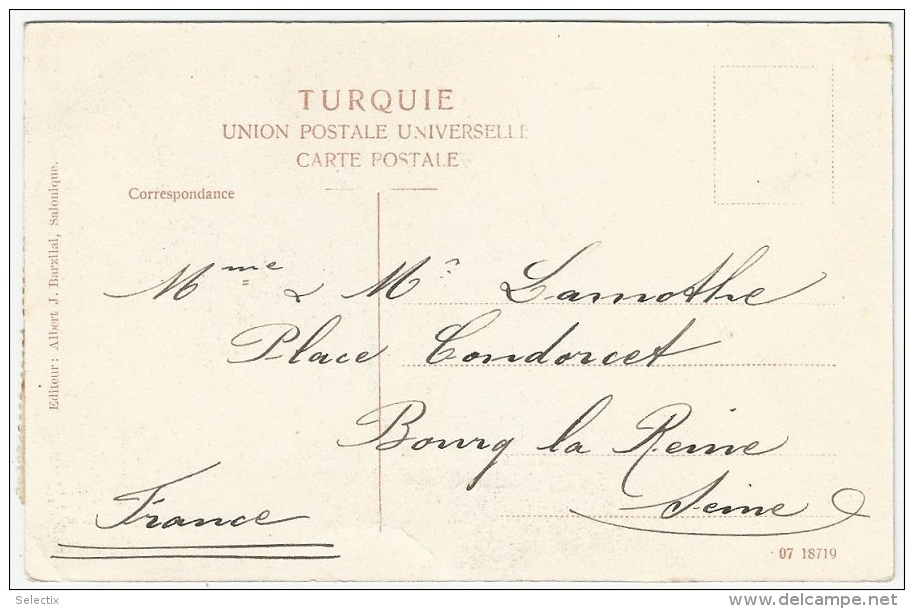 TURQUIE
UNION POSTALE UNIVERSELLE
CARTE POSTALE
Correspondance
Editeur: Albert J. Barzilai, Salonique.
Mme & Mr Lamothe
Place Condorcet
Bourg la Reine
Seine
France
07 18719
Selectix
delcampe.net